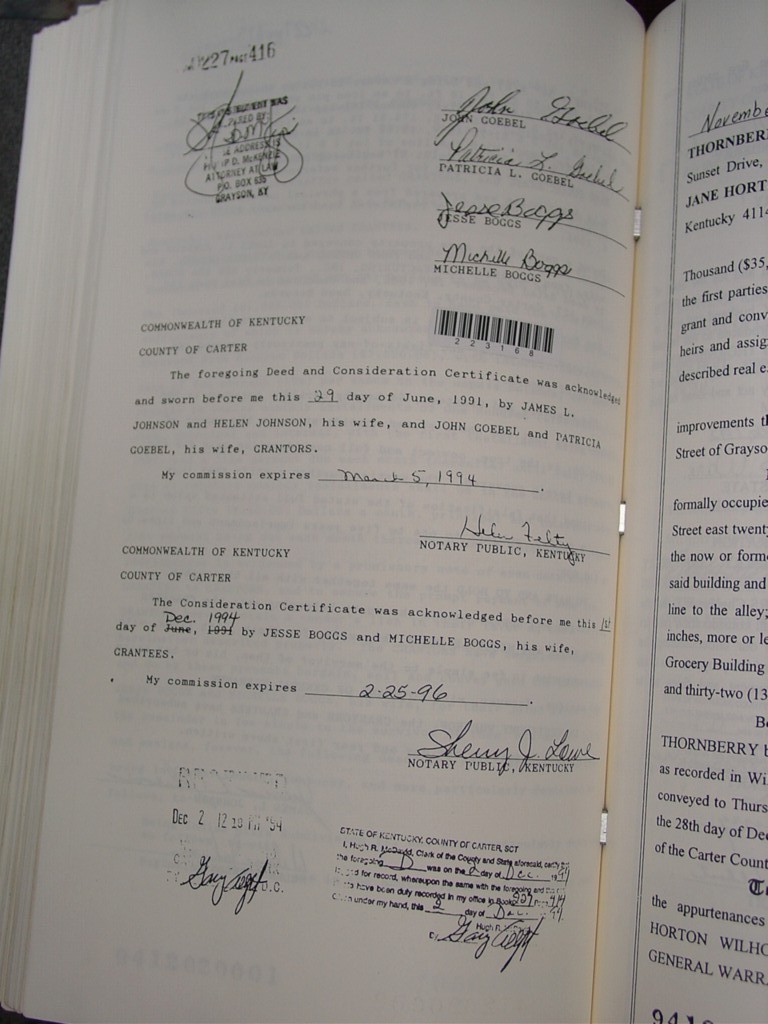 227 416
PREPARED BY
ADDRESS IS
PHILLIP D. McKENZIE
ATTORNEY AT LAW
P.O. BOX 635
GRAYSON, KY
John Goebel
JOHN GOEBEL
Patricia L. Goebel
PATRICIA L. GOEBEL
Jesse Boggs
JESSE BOGGS
Michelle Boggs
MICHELLE BOGGS
223168
COMMONWEALTH OF KENTUCKY
COUNTY OF CARTER
The foregoing Deed and Consideration Certificate was acknowledged
and sworn before me this 29 day of June, 1991, by JAMES L.
JOHNSON and HELEN JOHNSON, his wife, and JOHN GOEBEL and PATRICIA
GOEBEL, his wife, GRANTORS.
My commission expires March 5, 1994.
Helen Felty
NOTARY PUBLIC, KENTUCKY
COMMONWEALTH OF KENTUCKY
COUNTY OF CARTER
The Consideration Certificate was acknowledged before me this 1st
Dec. 1994
day of June, 1991 by JESSE BOGGS and MICHELLE BOGGS, his wife,
GRANTEES.
My commission expires 2-25-96.
Sherry J. Lowe
NOTARY PUBLIC, KENTUCKY
DEC 2 12 19 PM '94
D.C.
STATE OF KENTUCKY, COUNTY OF CARTER, SCT
I, Hugh R. McDavid, Clerk of the County and State aforesaid, certify that
the foregoing D was on the 2 day of Dec. 1994
for record, whereupon the same with the foregoing and
have been duly recorded in my office in Book 227 Page 414
Given under my hand, this 2 day of Dec. 1994
Hugh R.
Novembe
THORNBER
Sunset Drive,
JANE HORT
Kentucky 4114
Thousand ($35,
the first parties
grant and conv
heirs and assig
described real e
improvements th
Street of Grayso
formally occupie
Street east twent
the now or form
said building and
line to the alley;
inches, more or le
Grocery Building
and thirty-two (13
Be
THORNBERRY b
as recorded in Wi
conveyed to Thurs
the 28th day of Dec
of the Carter Count
the appurtenances
HORTON WILHO
GENERAL WARRA